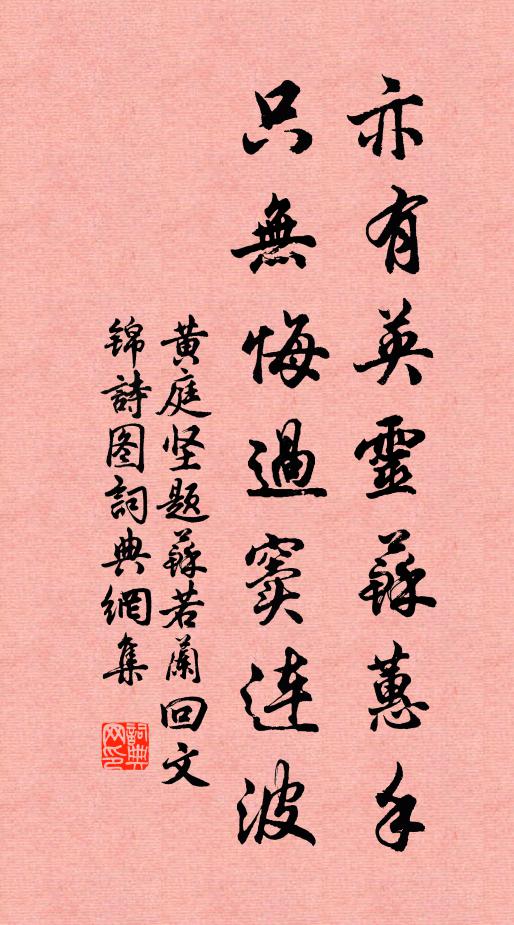 亦有英靈蘇蕙手
只無悔過竇连波
黄庭坚题蘇若蘭回文
锦詩图詞典網集
詞典網印